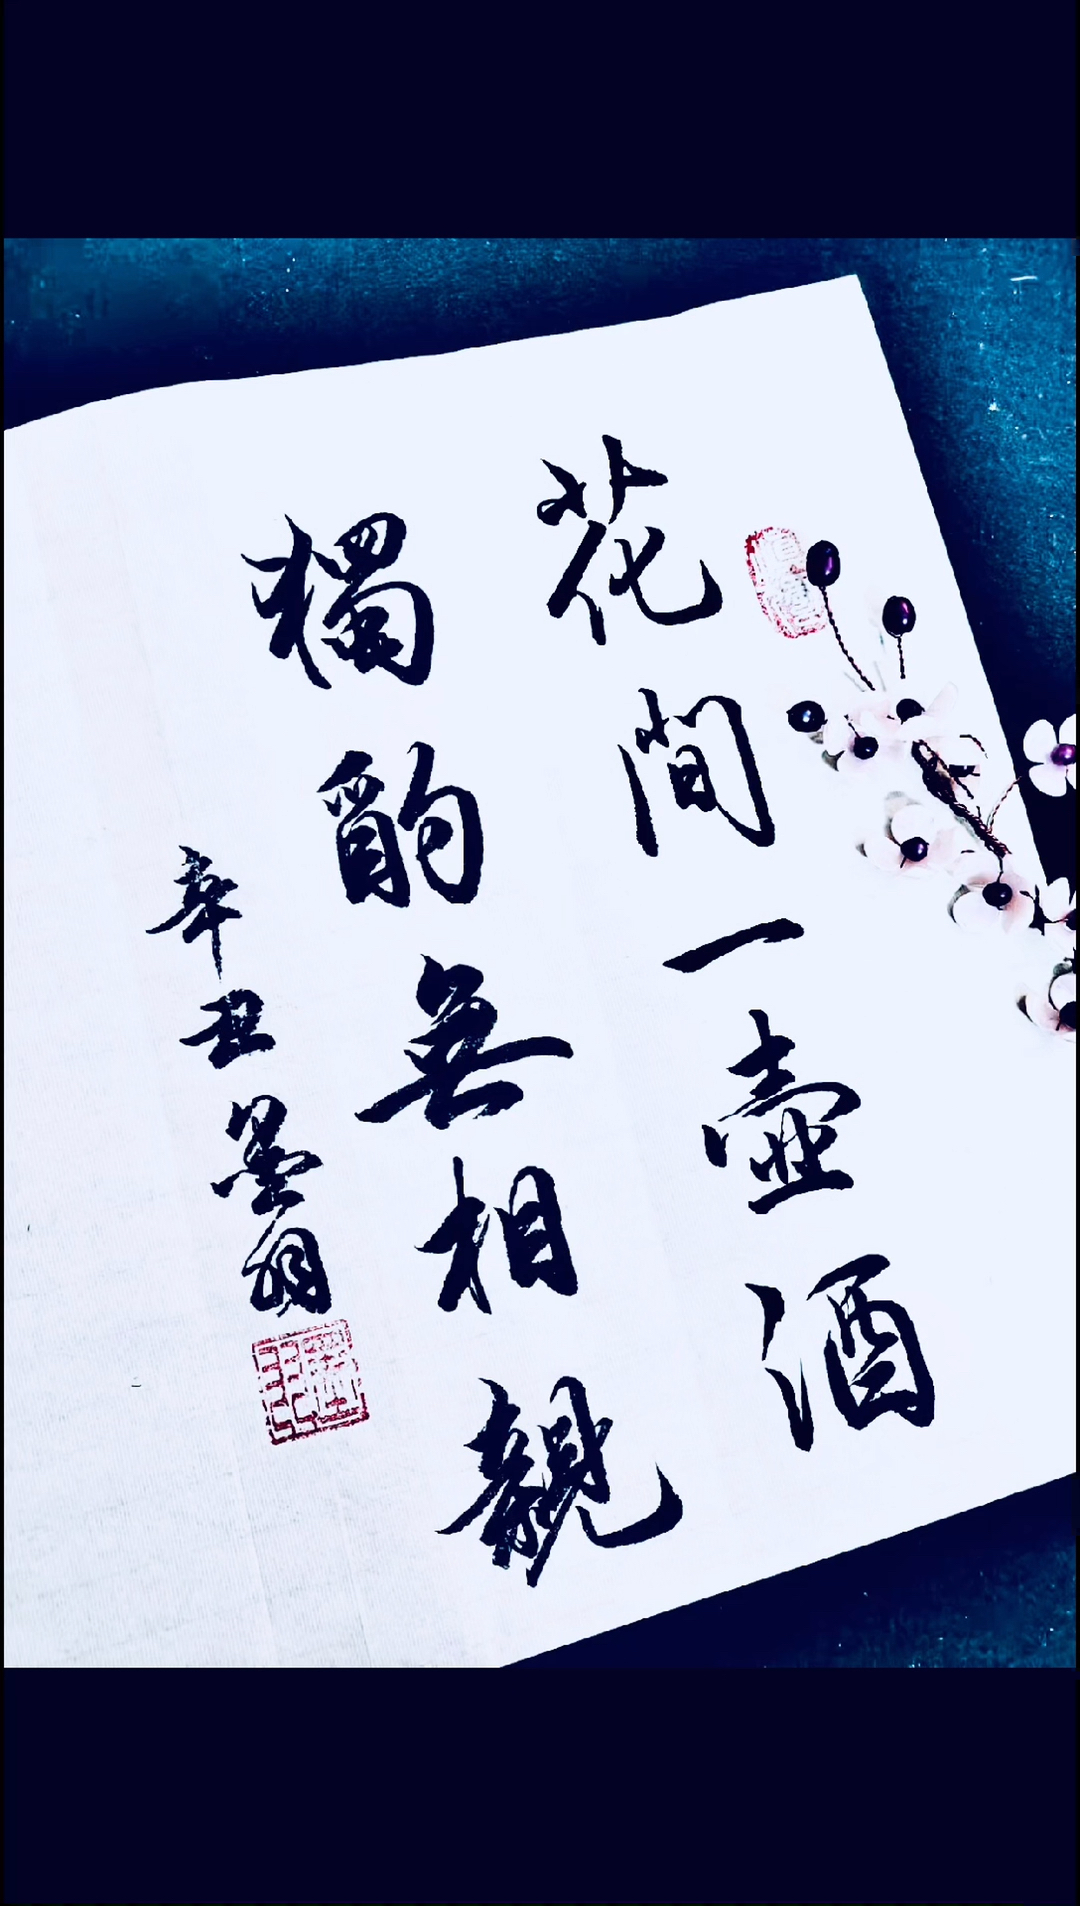 花間一壺酒
獨酌無相親
辛丑墨翁